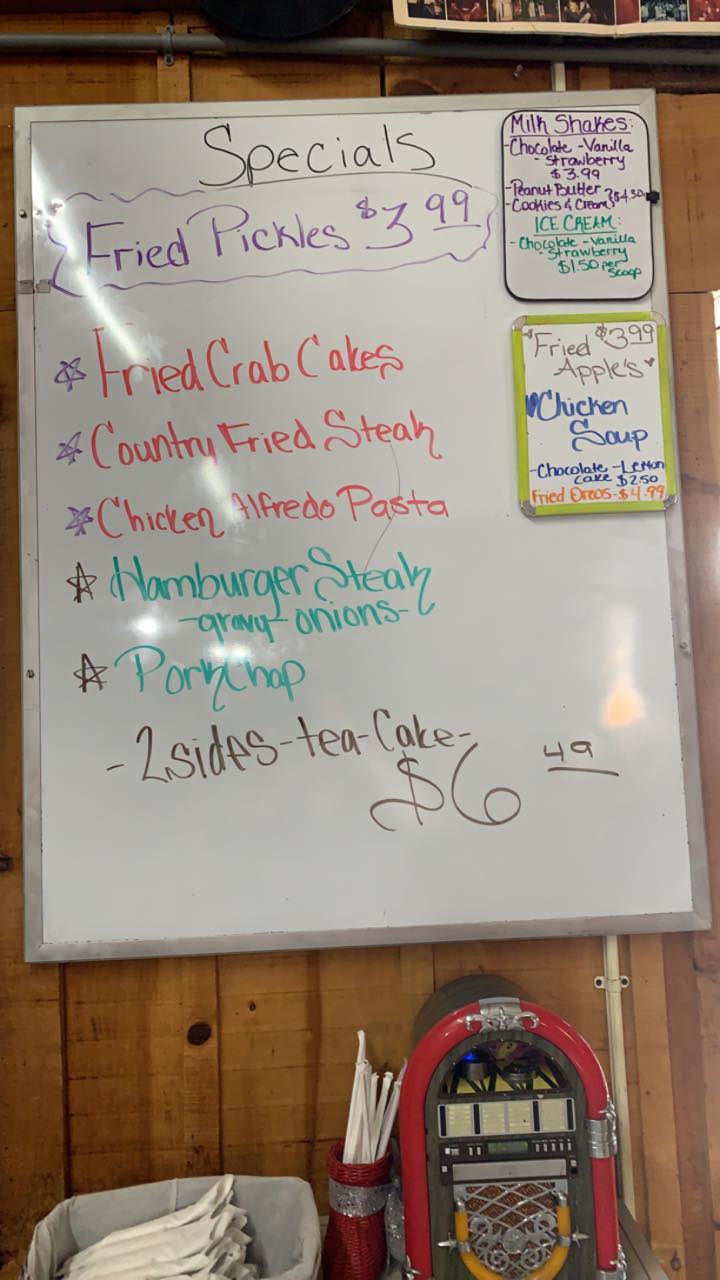 Specials
Fried Pickles $3.99
Fried Crab Cakes
Country Fried Steak
Chicken Alfredo Pasta
Hamburger Steak
-gravy-onions-
Pork Chop
-2 sides-tea-Cake-
$6 49
Milk Shakes:
-Chocolate -Vanilla
-Strawberry
$3.99
-Peanut Butter
-Cookies & Cream
ICE CREAM:
-Chocolate -Vanilla
-Strawberry
$1.50 per
scoop
Fried $3.99
Apple's
Chicken
Soup
-Chocolate -Lemon
cake $2.50
Fried Oreos-$4.99